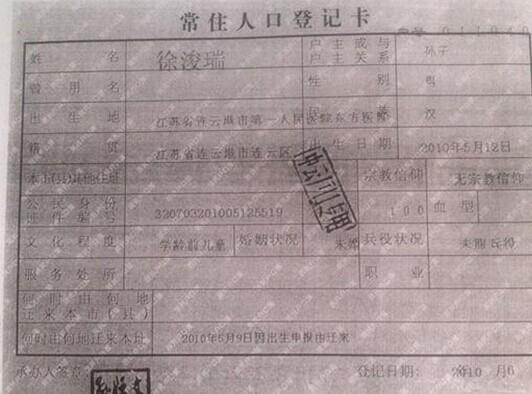 常住人口登记卡
姓名 徐浚瑞 户主或与户主关系 孙子
曾用名 性别 男
出生地 江苏省连云港市第一人民医院东方医院 民族 汉
籍贯 江苏省连云港市连云区 出生日期 2010年5月12日
本市(县)其他住址 宗教信仰 无宗教信仰
公民身份证件编号 320703201005125519 100 血型
文化程度 学龄前儿童 婚姻状况 未婚 兵役状况 未服兵役
服务处所 职业
何时由何地迁来本市(县)
何时由何地迁来本址 2010年6月9日因出生申报由迁来
承办人签章: 登记日期: 2010 年 6 月